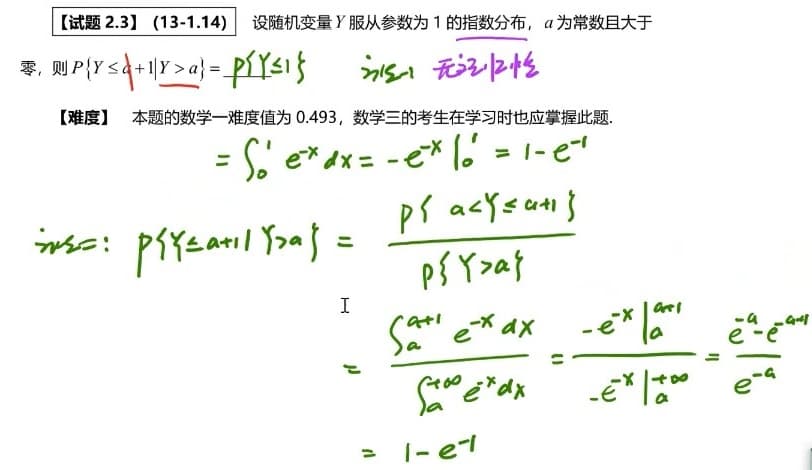 【试题 2.3】 (13-1.14) 设随机变量 Y 服从参数为 1 的指数分布，a 为常数且大于
零，则 P{Y≤a+1|Y>a} = P{Y≤1} 法一 无记忆性
【难度】 本题的数学一难度值为 0.493，数学三的考生在学习时也应掌握此题.
= ∫₀¹ e^{-x} dx = -e^{-x} |₀¹ = 1 - e^{-1}
法二: P{Y≤a+1|Y>a} = P{a<Y≤a+1} / P{Y>a}
= ∫_a^{a+1} e^{-x} dx / ∫_a^{+∞} e^{-x} dx = -e^{-x} |_a^{a+1} / -e^{-x} |_a^{+∞} = (e^{-a} - e^{-a+1}) / e^{-a}
= 1 - e^{-1}